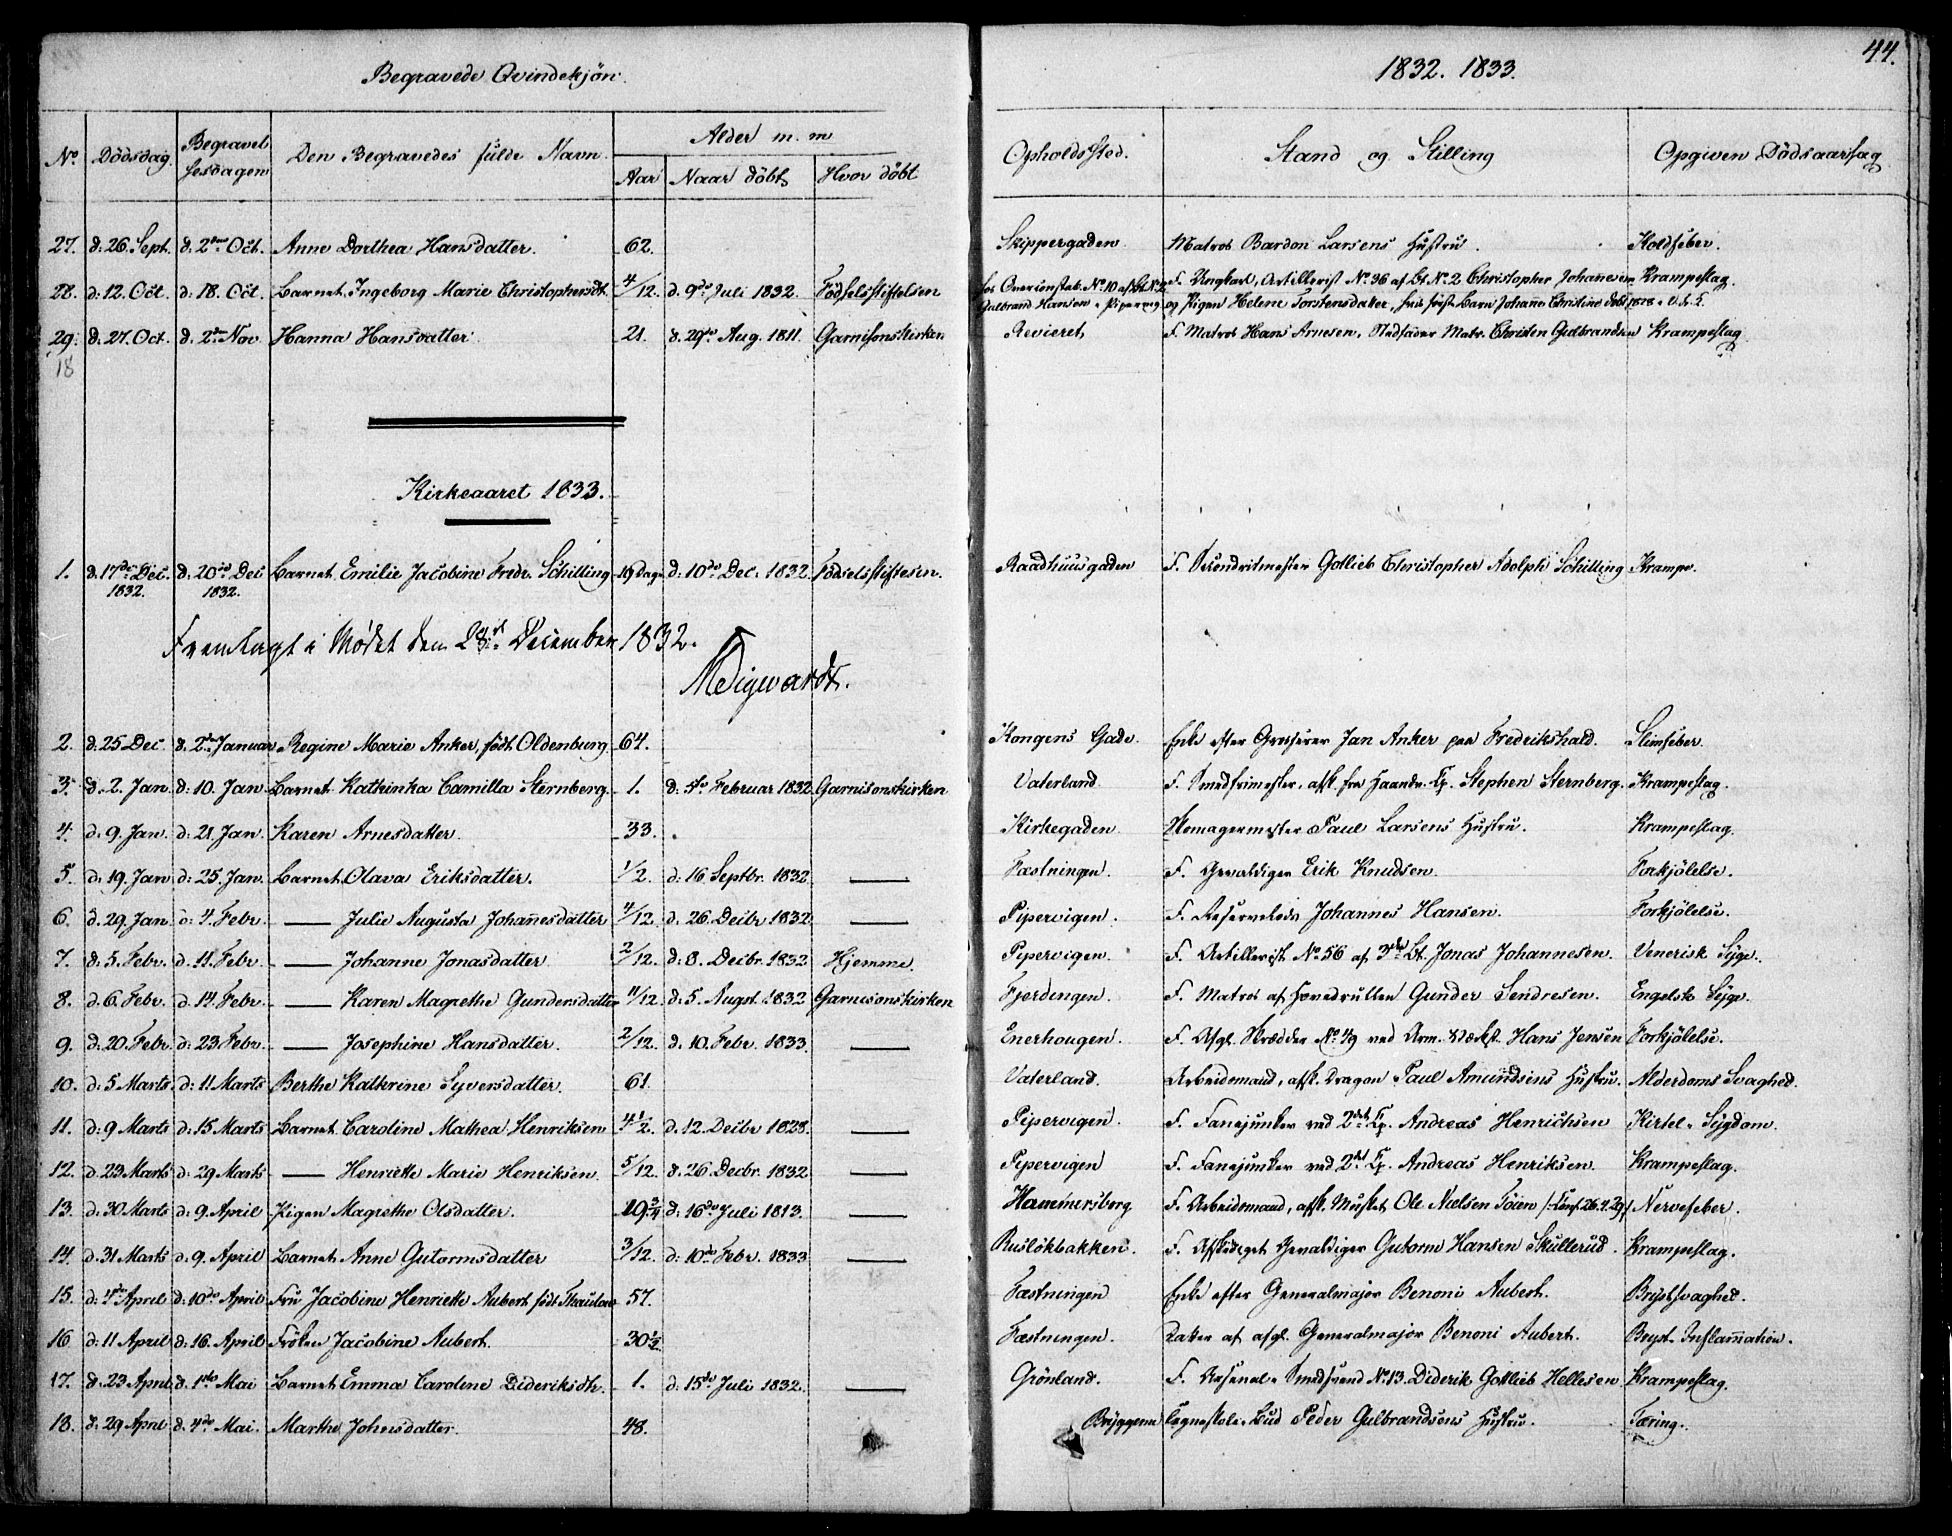 44.
Begravede Qvindekjön.
1832. 1833.
No. Dödsdag. Begravelsesdagen Den Begravedes fulde Navn. Alder m. m Aar Naar döbt Hvor döbt Opholdssted. Stand og Stilling Opgiven Dödsaarsag
27. d: 26. Sept. d. 2den Oct. Anne Dorthea Hansdatter. 62. Skippergaden Matros Bardon Larsens Hustru. Koldfeber.
28. d: 12. Oct. d: 18. Oct. Barnet Ingeborg Marie Christophersdt. 4/12. d. 9de Juli 1832. Födselsstiftelsen F. Ungkarl, Artillerist No. 36 af Bt. No. 2 Christopher Johannesen Krampeslag.
Gulbrand Hansen i Pipervig og Pigen Helene Torstensdatter, hvis förste Barn Johanne Christine döbt 1828
29. d: 27. Oct. d. 2den Nov. Hanna Hansdatter. 21. d. 29de Aug. 1811. Garnisonskirken Revieret F. Matros Hans Arnesen, Stedfader Matr. Christen Gulbrandsen Krampeslag
18
Kirkeaaret 1833.
1. d. 17de Dec. 1832. d. 20de Dec 1832. Barnet Emilie Jacobine Fredr. Schilling 19 Dage d: 10de Dec. 1832. Födselsstiftelsen. Raadhuusgaden F. Gottlieb Christopher Adolph Schilling Krampe.
Fremlagt i Mödet den 28de December 1832.
2. d: 25 Dec. d. 2den Januar Regine Marie Anker, födt Oldenburg 64. Kongens Gade. Enke efter Grosserer Jan Anker paa Fredrikshald. Slimfeber.
3. d. 2. Jan. d: 10. Jan. Barnet Kathinka Camilla Sternberg. 1. d: 5te Februar 1832. Garnisonskirken Vaterland F. Smedsvend, afsk. fra Haandv. Cp. Stephen Sternberg. Krampeslag.
4. d. 9. Jan. d: 21. Jan. Karen Arnesdatter. 33. Kirkegaden Skomagermester Paul Larsens Hustru. Krampeslag.
5. d. 19. Jan. d: 25. Jan. Barnet Olava Eriksdatter. 1/2. d: 16. Septbr. 1832. — Fæstningen. F. Gevaldiger Erik Knudsen. Forkjölelse.
6. d. 29. Jan. d: 4. Febr. — Julie Augusta Johannesdatter 4/12. d. 26. Decbr 1832. — Pipervigen. F. Johannes Hansen. Forkjölelse.
7. d: 5. Febr. d: 11. Febr. — Johanne Jonasdatter 2/12. d: 8. Decbr. 1832 Hjemme. Pipervigen. F. Artillerist No 56 af 3die Bt. Jonas Johannesen. Venerisk Syge.
8. d. 6. Febr. d. 14. Febr. — Karen Magrethe Gundersdatter 11/12. d: 5. Augst. 1832 Garnisonskirken Fjerdingen. F. Matros af Hovedrullen Gunder Sendresen. Engelsk Syge.
9. d: 20. Febr. d: 23. Febr. — Josephine Hansdatter. 2/12. d. 10. Febr. 1833. — Enerhougen. F. Afg. Skrædder No. 49 ved Arm. Hans Jensen Forkjölelse.
10. d: 5 Marts. d: 11 Marts Berthe Kathrine Syversdatter. 61. Vaterland. Arbeidsmand, afsk. Dragon Paul Amundsens Hustru. Alderdoms Svaghed.
11. d: 9 Marts d: 15 Marts Barnet Caroline Mathea Henriksen 4 1/2. d. 12. Decbr 1828. — Pipervigen. F. Fanejunker ved 2det Cp. Andreas Henrichsen Kirtel-Sygdom.
12. d. 23 Marts d: 29 Marts — Henriette Marie Henriksen. 5/12. d. 26. Decbr. 1832. — Pipervigen F. Fanejunker ved 2det Cp. Andreas Henriksen. Krampeslag.
13. d. 30 Marts d. 9. April Pigen Magrethe Olsdatter. 19 3/4 d: 16de Juli 1813. — Hammersborg F. Arbeidsmand, afsk. Musket. Ole Nielsen Töien Nervefeber.
14. d. 31 Marts d. 9. April Barnet Anne Gutormsdatter 3/12. d: 10de Febr. 1833 — Ruslökbakken. F. Afskediget Gevaldiger Gutorm Hansen Skullerud. Krampeslag.
15. d: 4de April d: 10de April Fru Jacobine Henriette Aubert födt Thaulow 57. Fæstningen Enke efter Generalmajor Benoni Aubert. Brystsvaghed.
16 d: 11 April d: 16. April Fröken Jacobine Aubert. 30 1/2. Fæstningen. Datter af afg. Generalmajor Benoni Aubert. Bryst-Inflammation.
17. d. 23 April d. 1ste Mai Barnet Emma Caroline Dideriksdtr. 1. d: 15de Juli 1832. — Grönland. F. Arsenal-Smedsvend No 13. Diderik Gottlieb Hellesen Krampeslag.
18. d: 29 April d. 4de Mai. Marthe Johnsdatter. 48. Bryggerne Tegneskole-Bud Peder Gulbrandsens Hustru. Tæring.